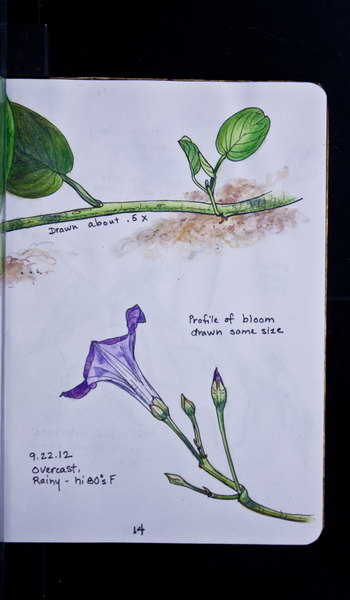 Drawn about .5 x
Profile of bloom
drawn same size
9.22.12
Overcast,
Rainy - hi 80's F
14